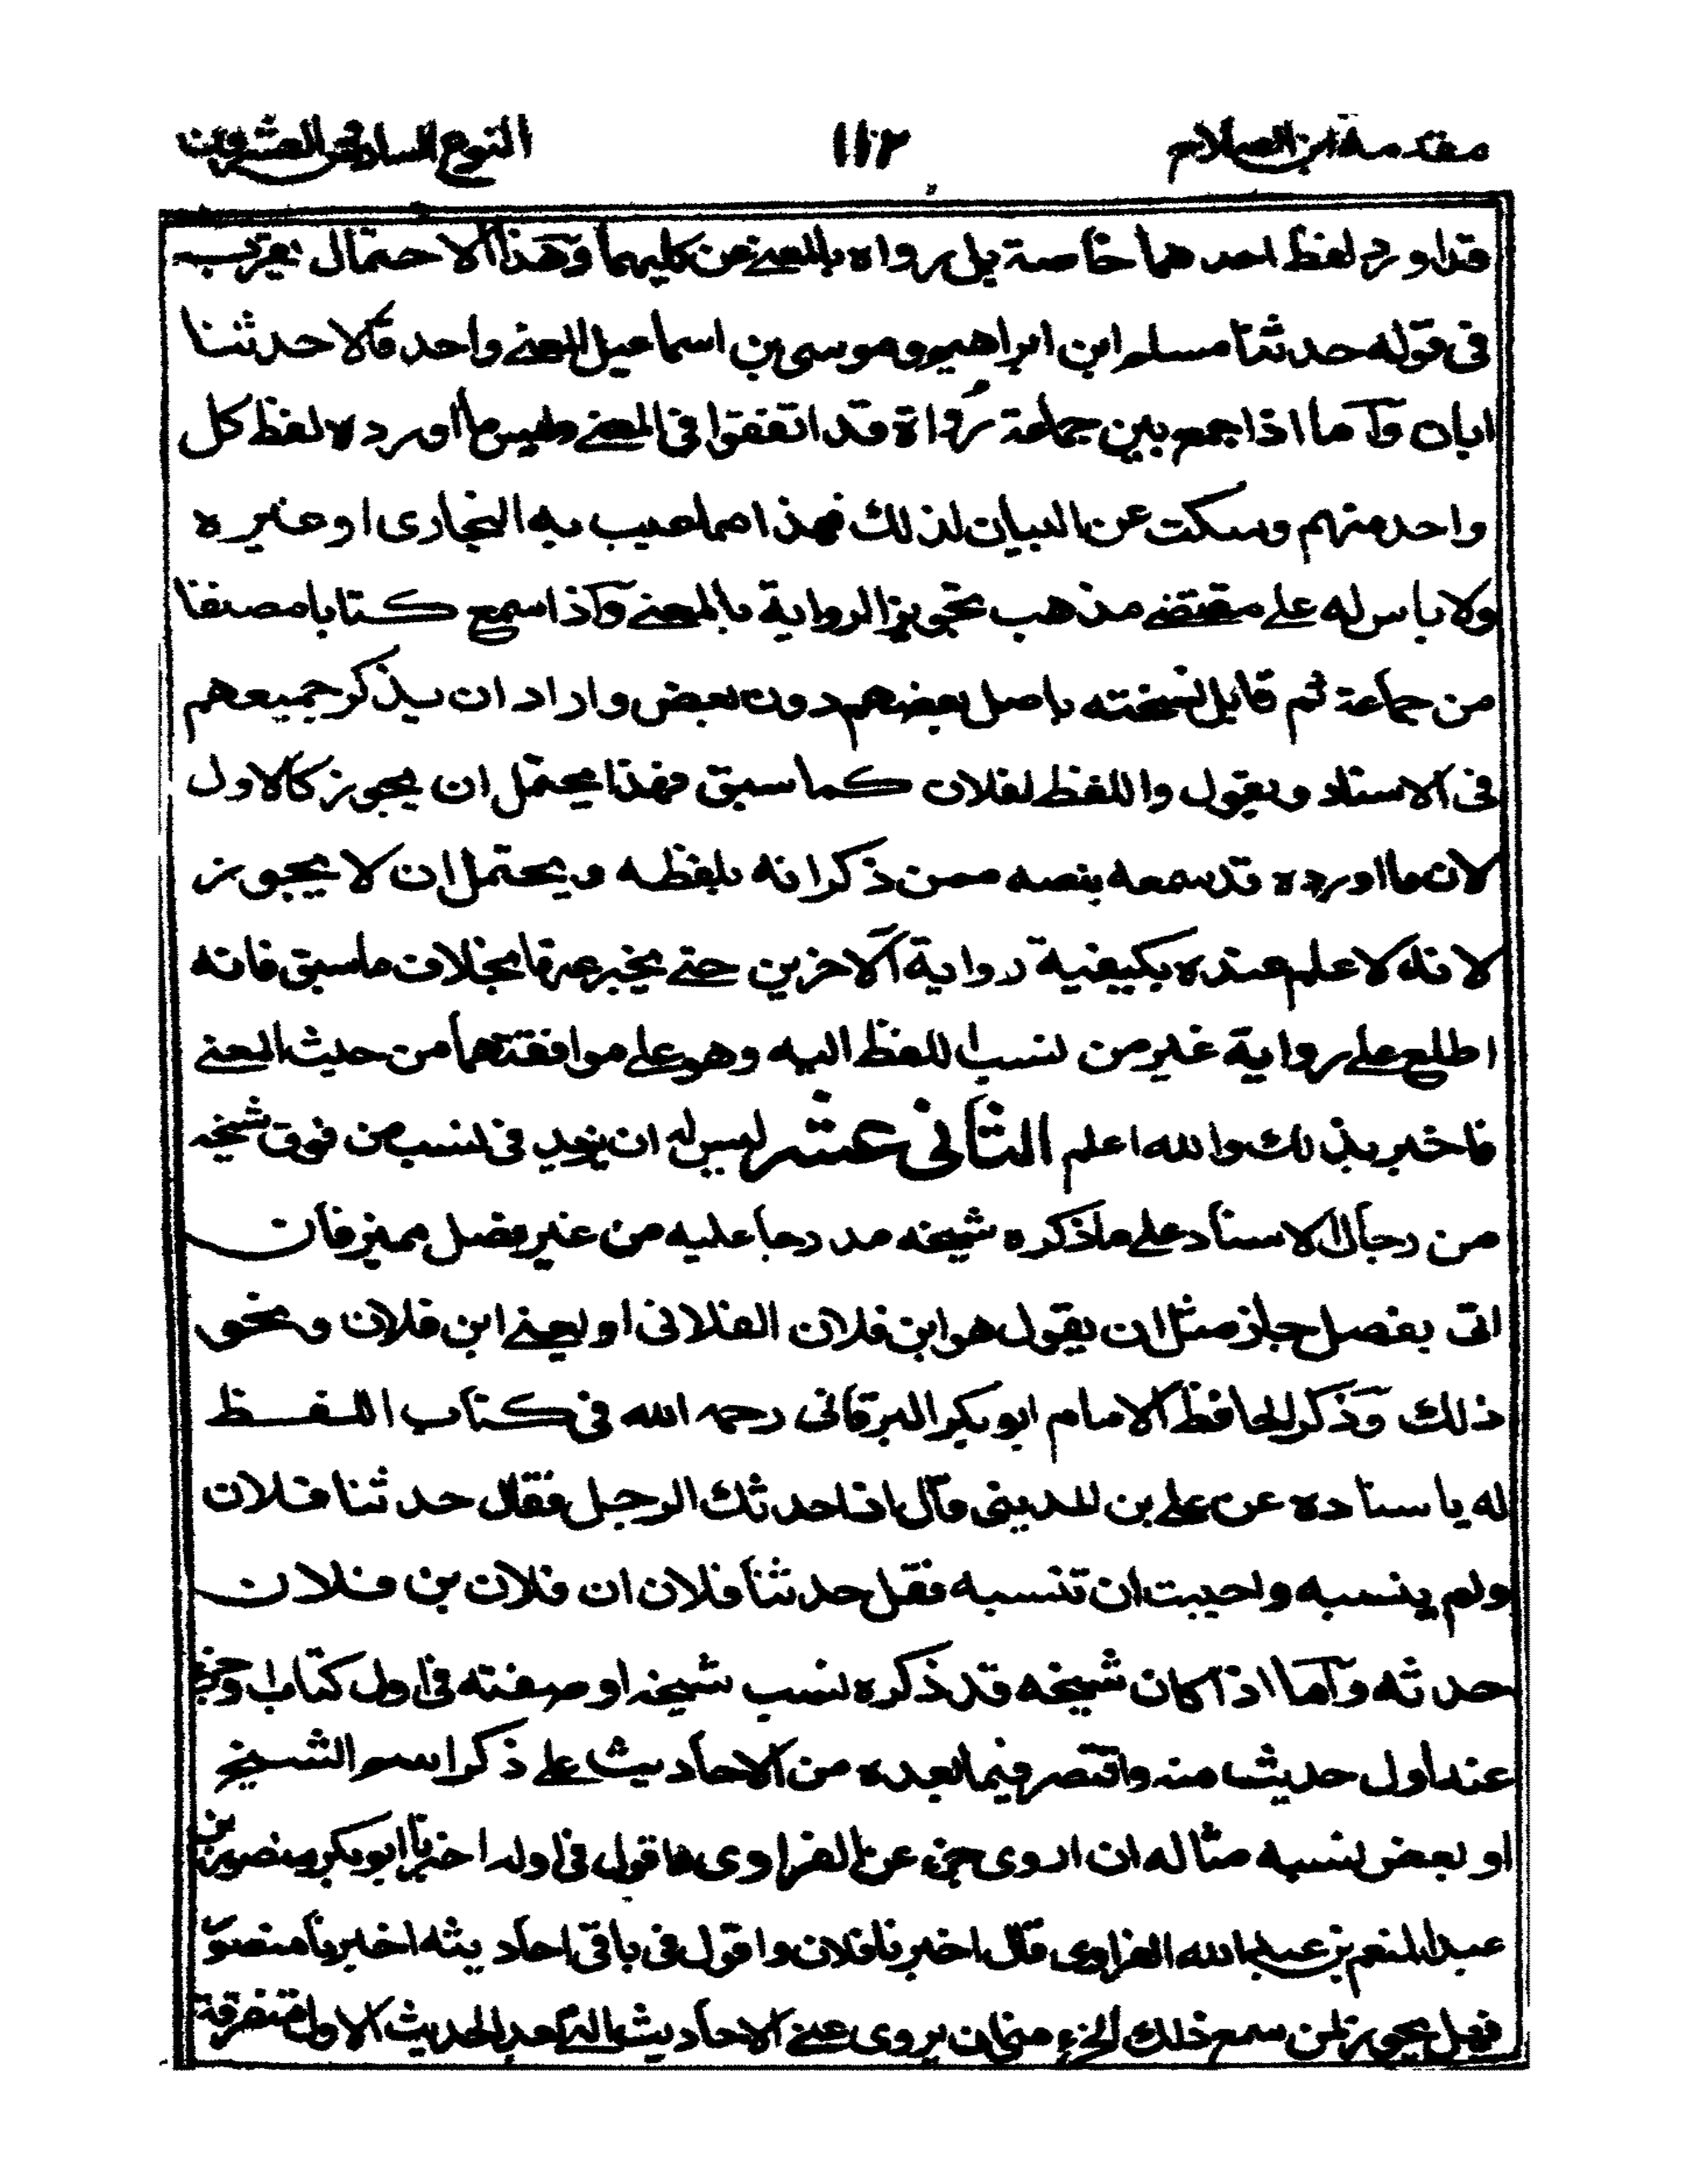 مقدمة ابن الصلاح ١١٢ النوع السادس والعشرون
قد اورد لفظ احدهما خاصة بل رواه بالمعنے عن كليهما وهذا الاحتمال يقرب
فى قوله حدثنا مسلم ابن ابراهيم وموسى بن اسماعيل المعنے واحد قالا حدثنا
ابان وآما اذا جمع بين جماعة رواة قد اتفقوا فى المعنے وليس ما اورده لفظ كل
واحد منهم وسكت عن البيان لذلك فهذا مما عيب به البخارى او غيره
ولا باس له علے مقتضے مذهب تجويز الرواية بالمعنے وآذا سمع كتابا مصنفا
من جماعة ثم قابل نسخته باصل بعضهم دون بعض واراد ان يذكر جميعهم
فى الاسناد ويقول واللفظ لفلان كما سبق فهذا يحتمل ان يجوز كالاول
لان ما اورده قد سمعه بنصه ممن ذكر انه بلفظه ويحتمل ان لا يجوز
لانه لا علم عنده بكيفية رواية الآخرين حتے يخبر عنها بخلاف ما سبق فانه
اطلع علے رواية غير من نسب اللفظ اليه وهو علے موافقتهما من حيث المعنے
فاخبر بذلك والله اعلم الثانى عشر ليس له ان يزيد فى نسب من فوق شيخه
من رجال الاسناد علے ما ذكره شيخه مدرجا عليه من غير فصل مميز فان
اتى بفصل جاز مثل ان يقول هو ابن فلان الفلانى او يعنے ابن فلان ونحو
ذلك وذكر الحافظ الامام ابو بكر البرقانى رحمه الله فى كتاب اللفظ
له باسناده عن علے بن المدينى قال اذا حدثك الرجل فقال حدثنا فلان
ولم ينسبه واحببت ان تنسبه فقل حدثنا فلان ان فلان بن فلان
حدثه وآما اذا كان شيخه قد ذكره نسب شيخه او صفته فى اول كتاب او جزء
عند اول حديث منه واقتصر فيما بعده من الاحاديث علے ذكر اسم الشيخ
او بعض نسبه مثاله ان اروى جزء عن الفراوى فاقول فى اوله اخبرنا ابو بكر منصور بن
عبد المنعم بن عبد الله الفراوى قال اخبرنا فلان واقول فى باقى احاديثه اخبرنا منصور
فهل يجوز لمن سمع ذلك الجزء منى ان يروى عنے الاحاديث التے بعد الحديث الاول متفرقة